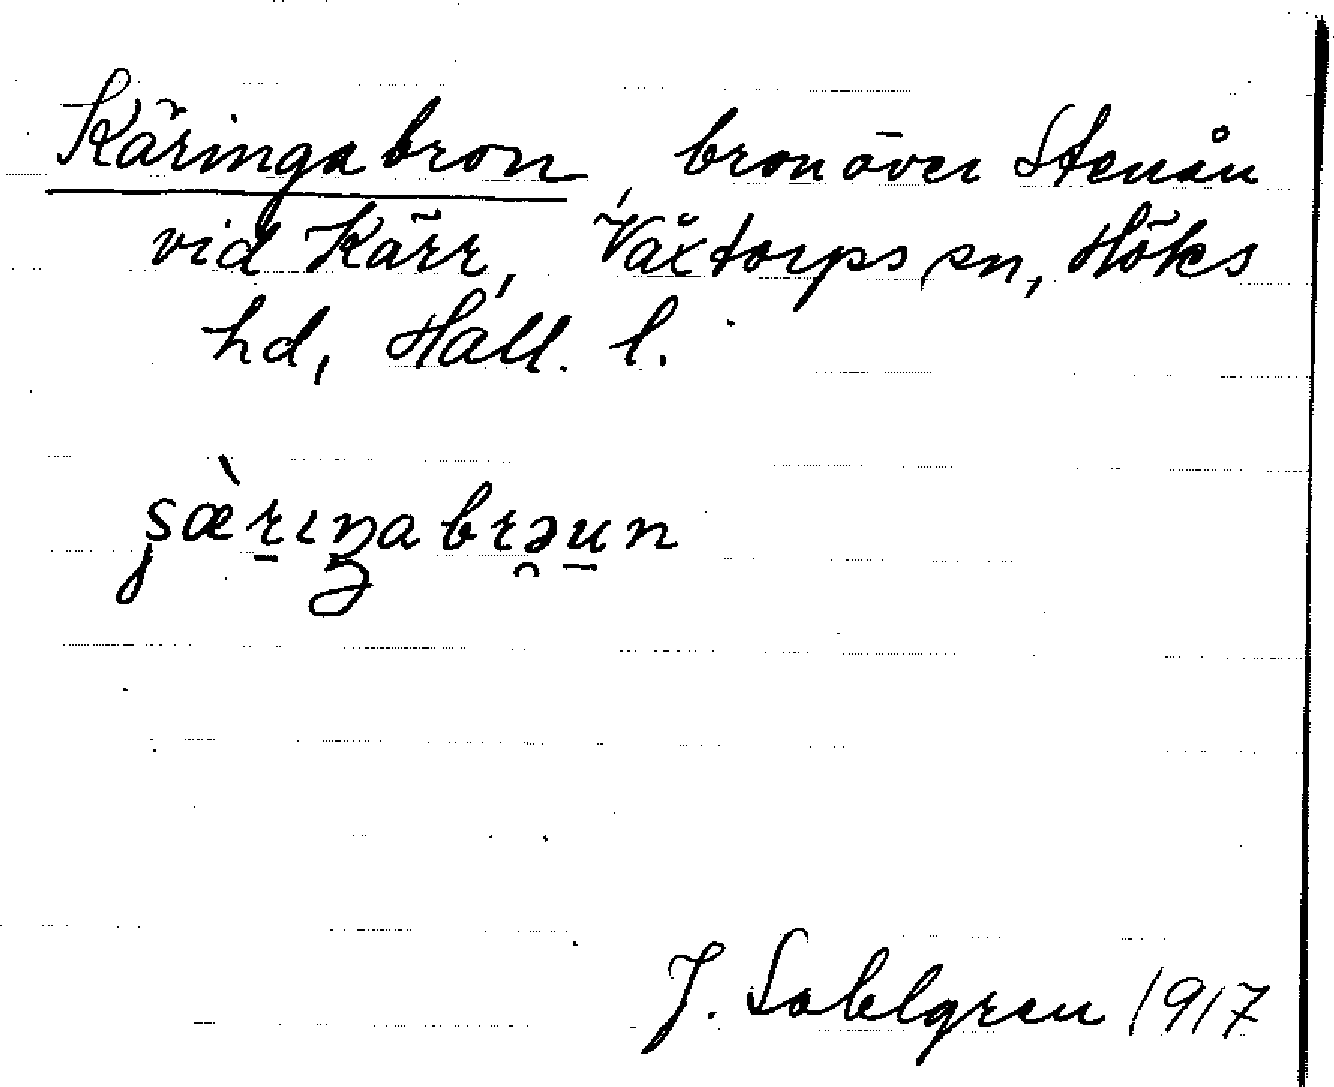 Käringabron, bron över Stenån
vid Kärr, Växtorps sn, Höks
hd, Hall. l.
ʂæ̀r̠ɩŋabrə̯u̠n
J. Sahlgren 1917